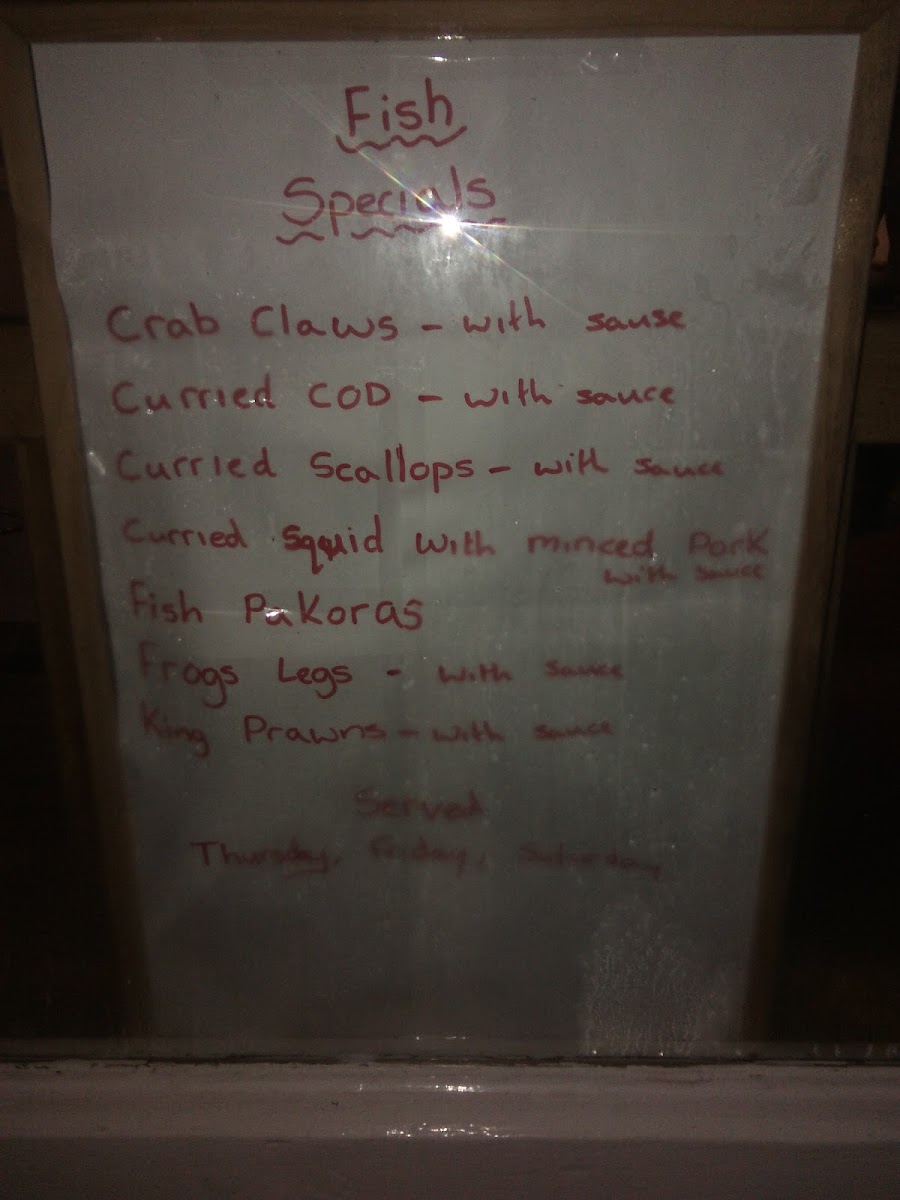 Fish
Specials
Crab Claws - with sause
Curried COD - with sauce
Curried Scallops - with sauce
Curried Squid with minced Pork
with sauce
Fish Pakoras
Frogs Legs - with sauce
King Prawns - with sauce
Served
Thursday, Friday, Saturday